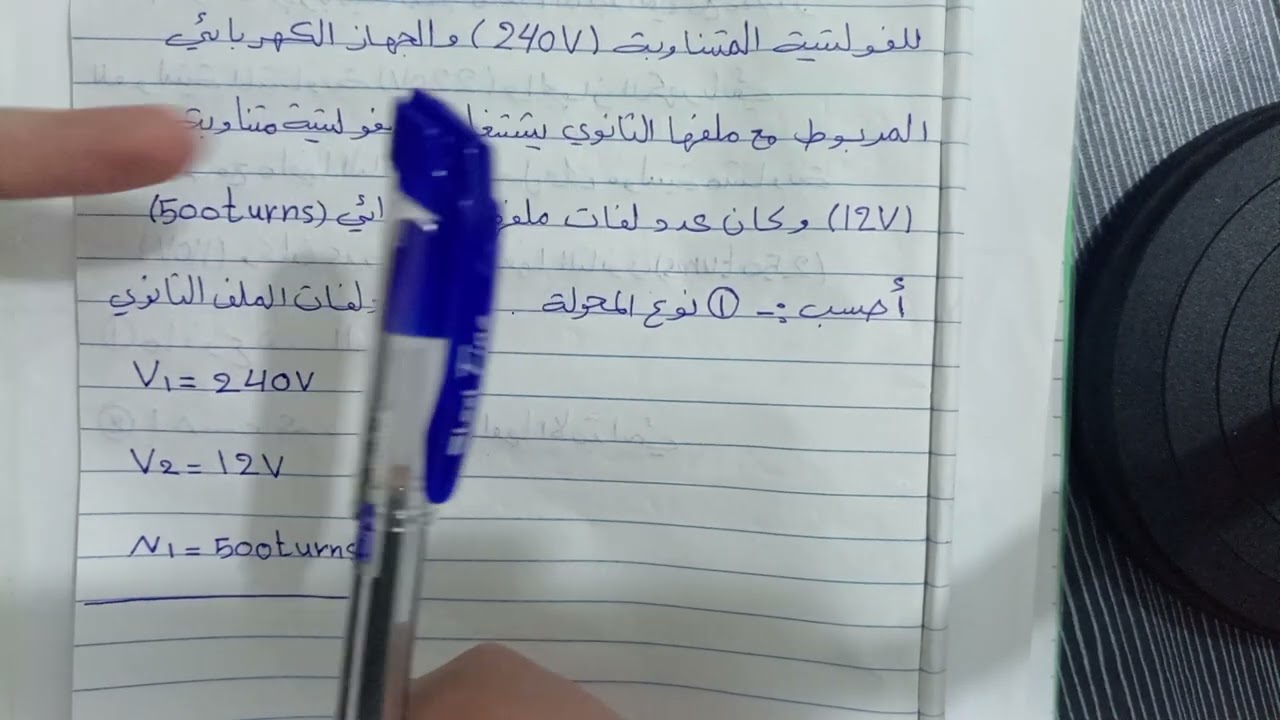 للفولتية المتناوبة (240V) والجهاز الكهربائي
المربوط مع ملفها الثانوي بفولتية متناوبة
(12V) وكان عدد لفات (500turns)
أحسب :- ① نوع المحولة لفات الملف الثانوي
V1 = 240V
V2 = 12V
N1 = 500turns